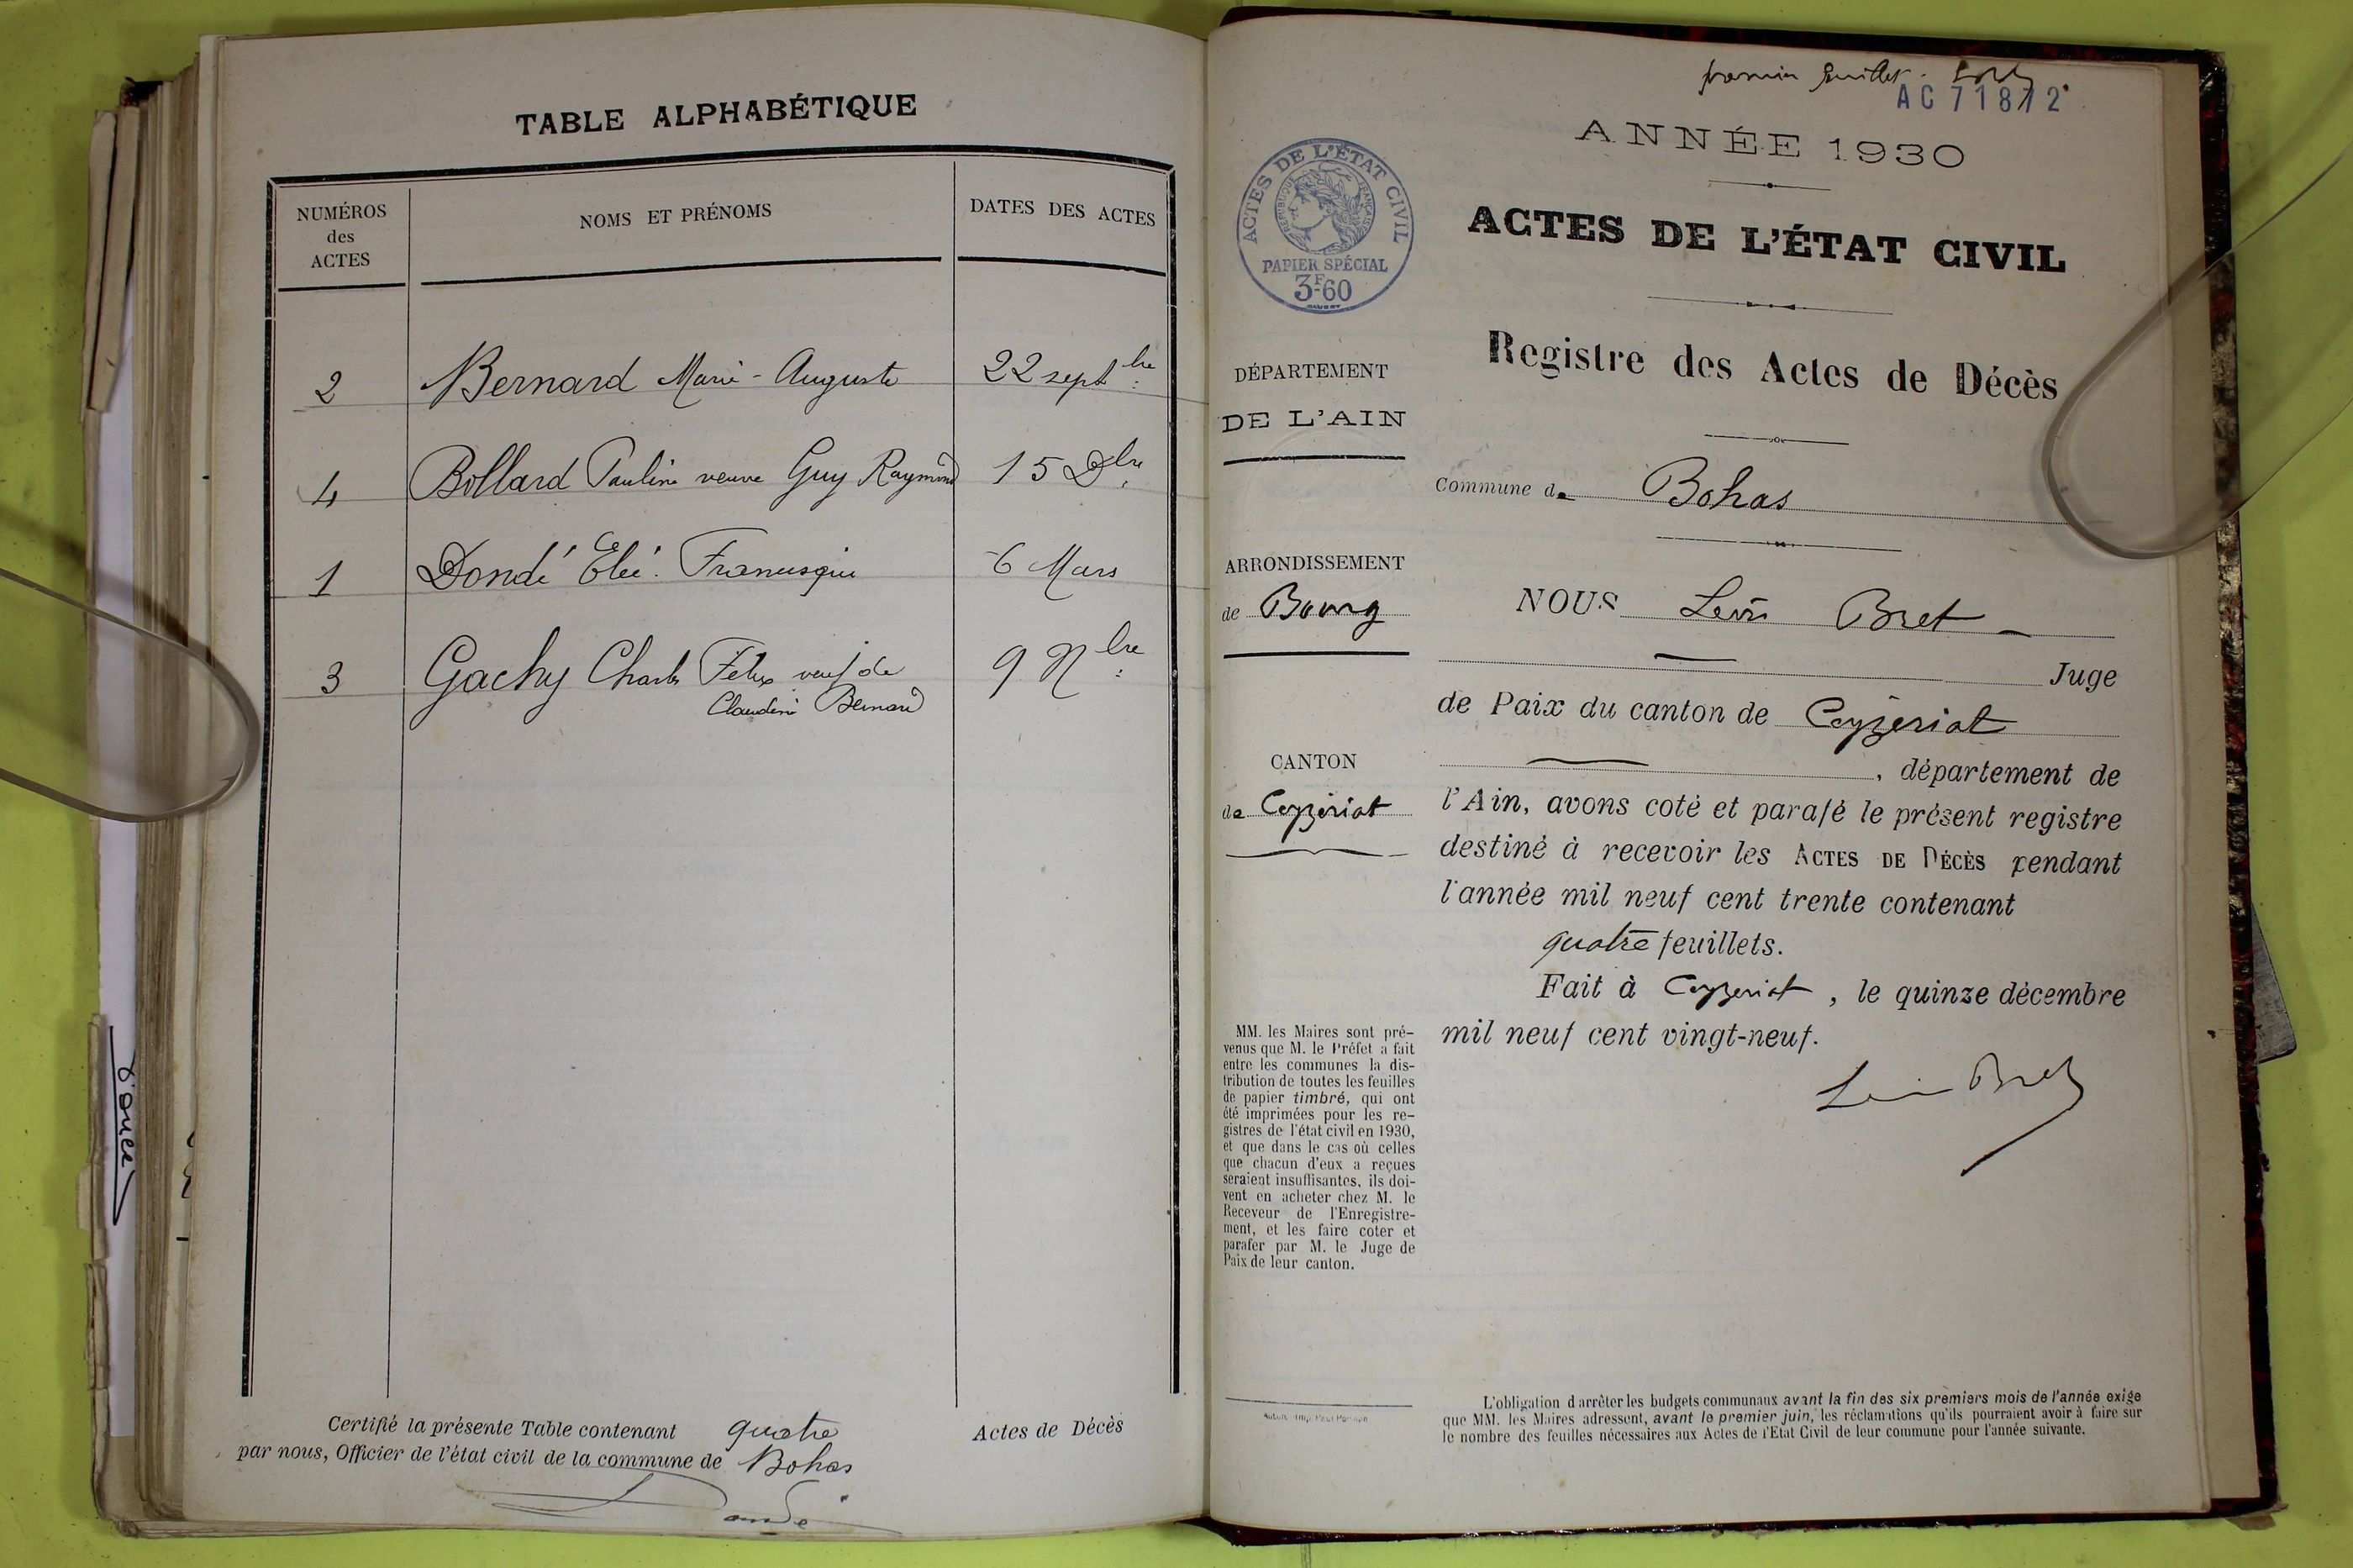 TABLE ALPHABÉTIQUE
NUMÉROS
des
ACTES
NOMS ET PRÉNOMS
DATES DES ACTES
2 Bernard Marie-Auguste 22 septbre
4 Bollard Pauline veuve Guy Raymond 15 Dbre
1 Dondé Elie Francisque 6 Mars
3 Gachy Charles Félix veuf de 9 Nbre
Claudine Bernard
Certifié la présente Table contenant quatre Actes de Décès
par nous, Officier de l'état civil de la commune de Bohas
Dondé
premier feuillet.
AC 71872
ANNÉE 1930
ACTES DE L'ÉTAT CIVIL
RÉPUBLIQUE FRANÇAISE
PAPIER SPÉCIAL
3F60
ACTES DE L'ÉTAT CIVIL
Registre des Actes de Décès
DÉPARTEMENT
DE L'AIN
Commune de Bohas
ARRONDISSEMENT
de Bourg
CANTON
de Ceyzériat
NOUS Bret
Juge
de Paix du canton de Ceyzeriat
, département de
l'Ain, avons coté et parafé le présent registre
destiné à recevoir les ACTES DE DÉCÈS pendant
l'année mil neuf cent trente contenant
quatre feuillets.
Fait à Ceyzeriat, le quinze décembre
mil neuf cent vingt-neuf.
Bret
MM. les Maires sont pré-
venus que M. le Préfet a fait
entre les communes la dis-
tribution de toutes les feuilles
de papier timbré, qui ont
été imprimées pour les re-
gistres de l'état civil en 1930,
et que dans le cas où celles
que chacun d'eux a reçues
seraient insuffisantes, ils doi-
vent en acheter chez M. le
Receveur de l'Enregistre-
ment, et les faire coter et
parafer par M. le Juge de
Paix de leur canton.
L'obligation d'arrêter les budgets communaux avant la fin des six premiers mois de l'année exige
que MM. les Maires adressent, avant le premier juin, les réclamations qu'ils pourraient avoir à faire sur
le nombre des feuilles nécessaires aux Actes de l'Etat Civil de leur commune pour l'année suivante.